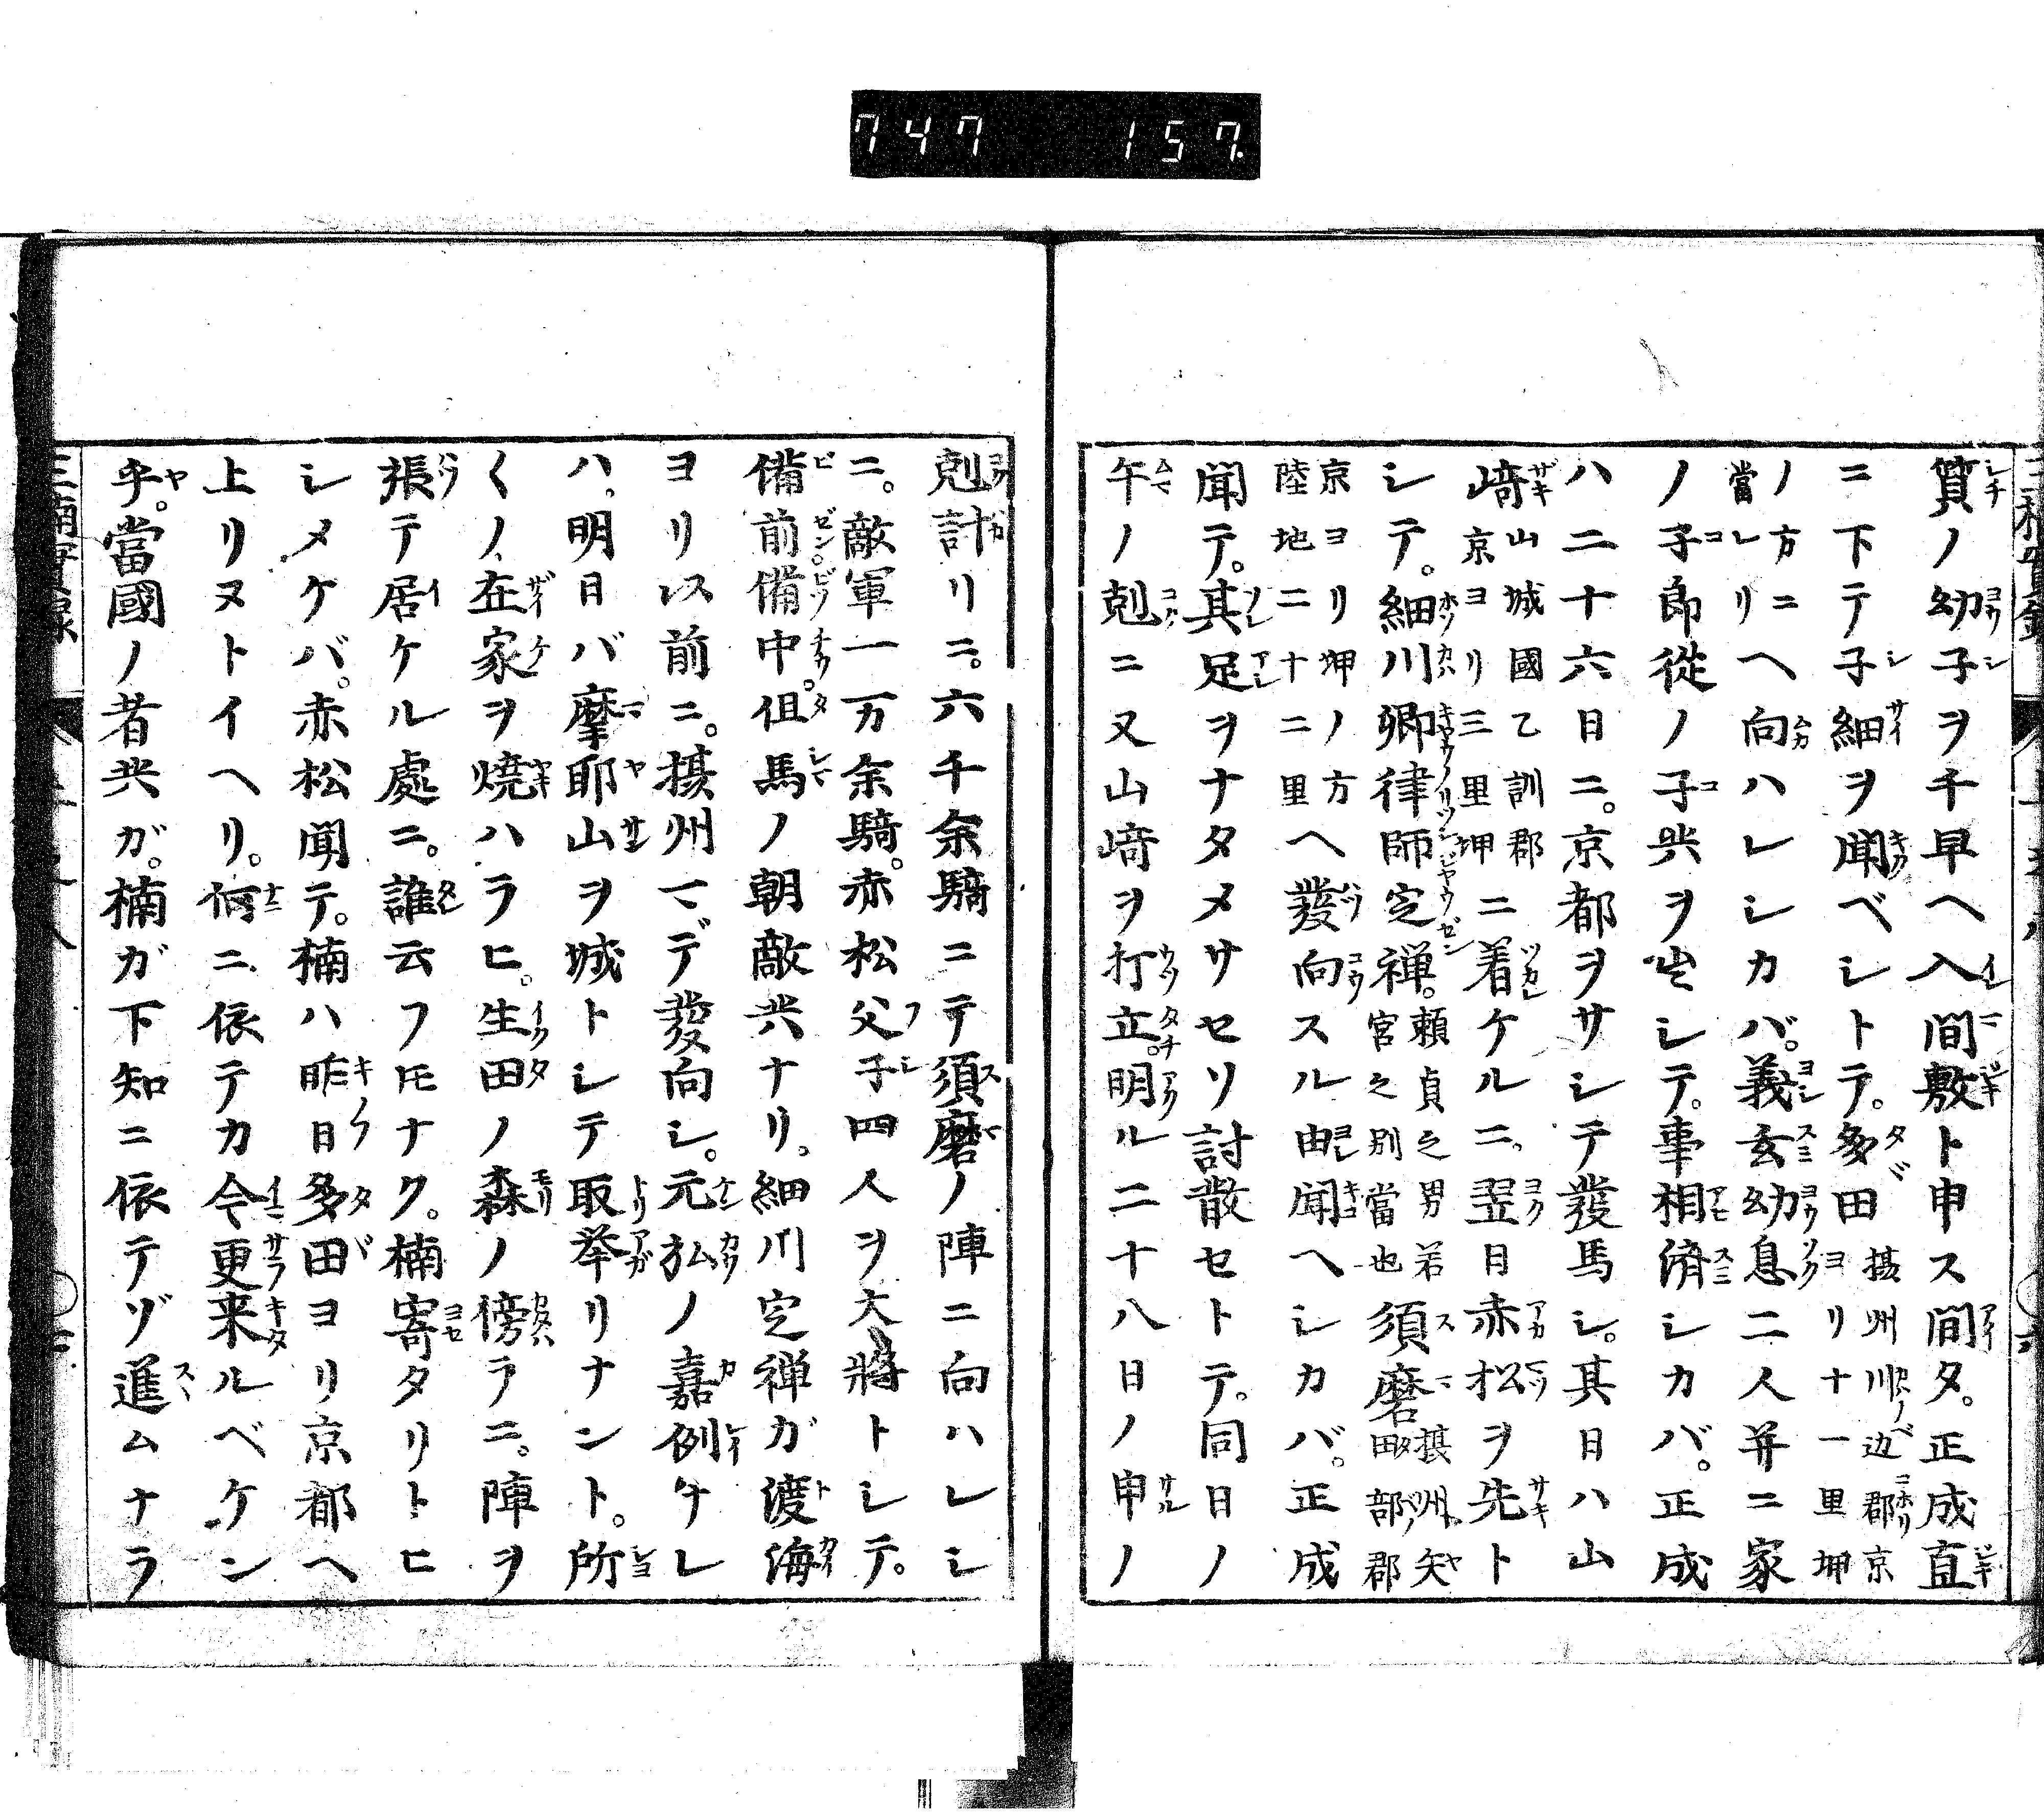 747 157
質ノ幼子ヲ千早ヘ入間敷ト申ス間タ。正成直
ニ下テ子細ヲ聞ベシトテ。多田摂州川辺郡京ヨリ十一里坤
ノ方ニ當レリヘ向ハレシカバ。義玄幼息二人并ニ家
ノ子郎従ノ子共ヲ出シテ。事相済シカバ。正成
ハ二十六日ニ。京都ヲサシテ發馬シ。其日ハ山
﨑山城國乙訓郡京ヨリ三里坤ニ着ケルニ。翌日赤松ヲ先ト
シテ。細川卿律師定禅。頼貞之男若宮之別當也須磨摂州矢田部郡
京ヨリ坤ノ方陸地二十二里ヘ發向スル由聞ヘシカバ。正成
聞テ。其足ヲナタメサセリ討散セトテ。同日ノ
午ノ剋ニ又山﨑ヲ打立。明ル二十八日ノ申ノ
剋計リニ。六千余騎ニテ須磨ノ陣ニ向ハレシ
ニ。敵軍一万余騎。赤松父子四人ヲ大將トシテ。
備前備中。但馬ノ朝敵共ナリ。細川定禅ガ渡海
ヨリ以前ニ。摂州マデ發向シ。元弘ノ嘉例ナレ
ハ、明日バ摩耶山ヲ城トシテ取挙リナント。所
〱ノ在家ヲ焼ハラヒ。生田ノ森ノ傍ラニ。陣ヲ
張テ居ケル處ニ。誰云フ𪜈ナク。楠寄タリトヒ
シメケバ。赤松聞テ。楠ハ昨日多田ヨリ京都ヘ
上リヌトイヘリ。何ニ依テカ今更来ルベケン
乎。當國ノ者共ガ。楠ガ下知ニ依テゾ進ムナラ